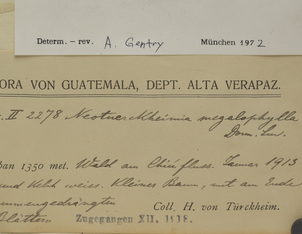 Determ. - rev. A. Gentry München 1972
ORA VON GUATEMALA, DEPT. ALTA VERAPAZ.
II 2278 Neotuerckheimia megalophylla
Donn. Sm.
ban 1350 met. Wald am Chinfluss. Januar 1913
und Kelch weiss. Kleiner Baum, mit am Ende
mmengedrängten Coll. H. von Türckheim.
Blättern Zugegangen XII, 1918.